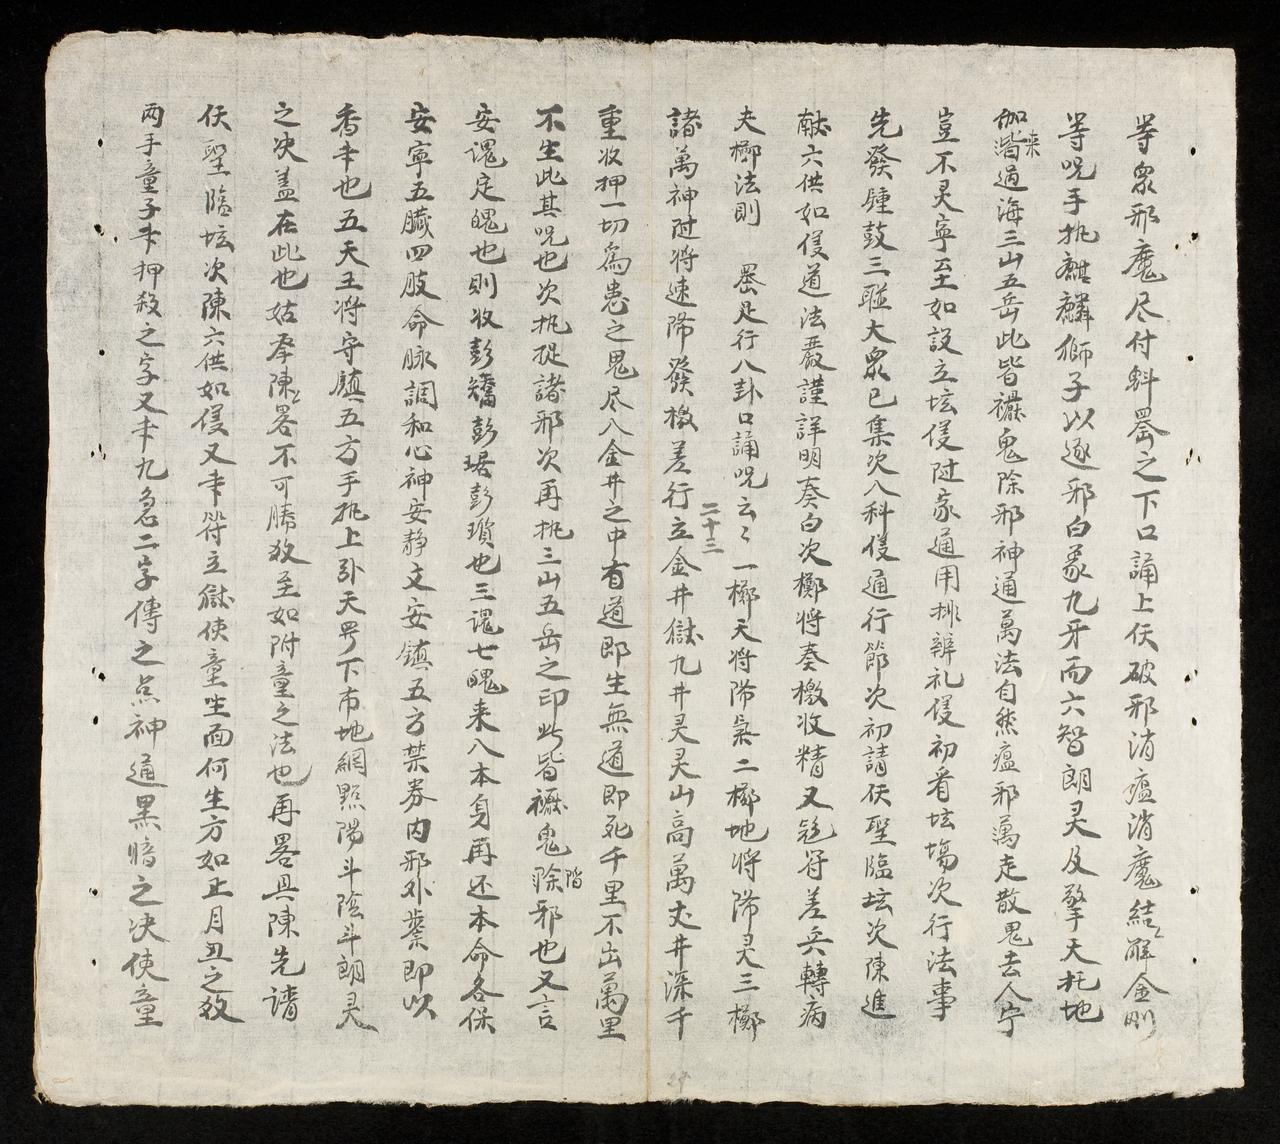 等衆邪魔尽付斛罡之下口誦上伏破邪消瘟消魔結〻解金剛
等呪手执麒麟獅子以逐邪白象九牙而六智朗灵及擎天托地
伽諧過海三山五岳此皆禳鬼除邪神通萬法自然瘟邪萬走散鬼去人宁
来
豈不灵寧至如設立坛侵附家通用排辨礼侵初看坛場次行法事
先發鍾鼓三聮大衆已集次入科侵通行節次初請伏聖臨坛次陳進
献六供如侵道法嚴謹詳明奏白次擲将奏檄收精又符差兵轉病
夫擲法則 罡足行八卦口誦呪云〻一擲天将降枭二擲地将降灵三擲
二十三
諸萬神附将速降發檄差行立金井獄九井灵灵山高萬丈井深千
重收押一切為患之鬼尽入金井之中有道即生無道即死千里不出萬里
不生此其呪也次执捉諸邪次再执三山五岳之印此皆禳鬼除邪也又言
諧
安魂定魄也則收彭矯彭琚彭瓆也三魂七魄来入本身再还本命各保
安寧五臓四肢命脉調和心神安静文安鎮五方禁券内邪外業即以
香丰也五天王将守鎮五方手执上引天罗下布地網點陽斗陰斗朗灵
之决盖在此也姑孝陳〻畧不可勝教至如附童之法也再畧具陳先請
伏聖臨坛次陳六供如侵又丰符立獄使童坐面何生方如正月丑之教
两手童子丰押殺之字又丰九名二字傳之点神通黑暗之决使童